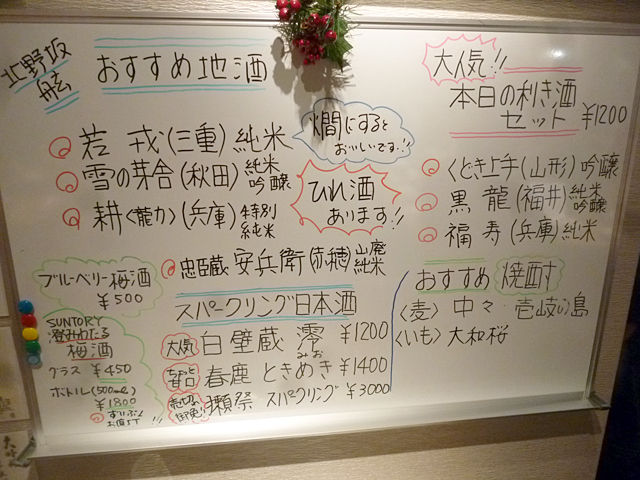 北野坂
舷
おすすめ地酒
若戎(三重)純米
雪の芽舎(秋田)純米吟醸
耕<龍力>(兵庫)特別純米
忠臣蔵 安兵衛(赤穂)山廃純米
燗にすると
おいしいです!!
ひれ酒
あります!!
大人気!!
本日の利き酒
セット ¥1200
くどき上手(山形)吟醸
黒龍(福井)純米吟醸
福寿(兵庫)純米
ブルーベリー梅酒
¥500
SUNTORY
梅酒
グラス ¥450
ボトル(500mL)
¥1800
お値うち
スパークリング日本酒
大人気 白壁蔵 澪 ¥1200
みお
ちょっと甘口 春鹿 ときめき ¥1400
獺祭 スパークリング ¥3000
おすすめ 焼酎
<麦> 中々 壱岐の島
<いも> 大和桜